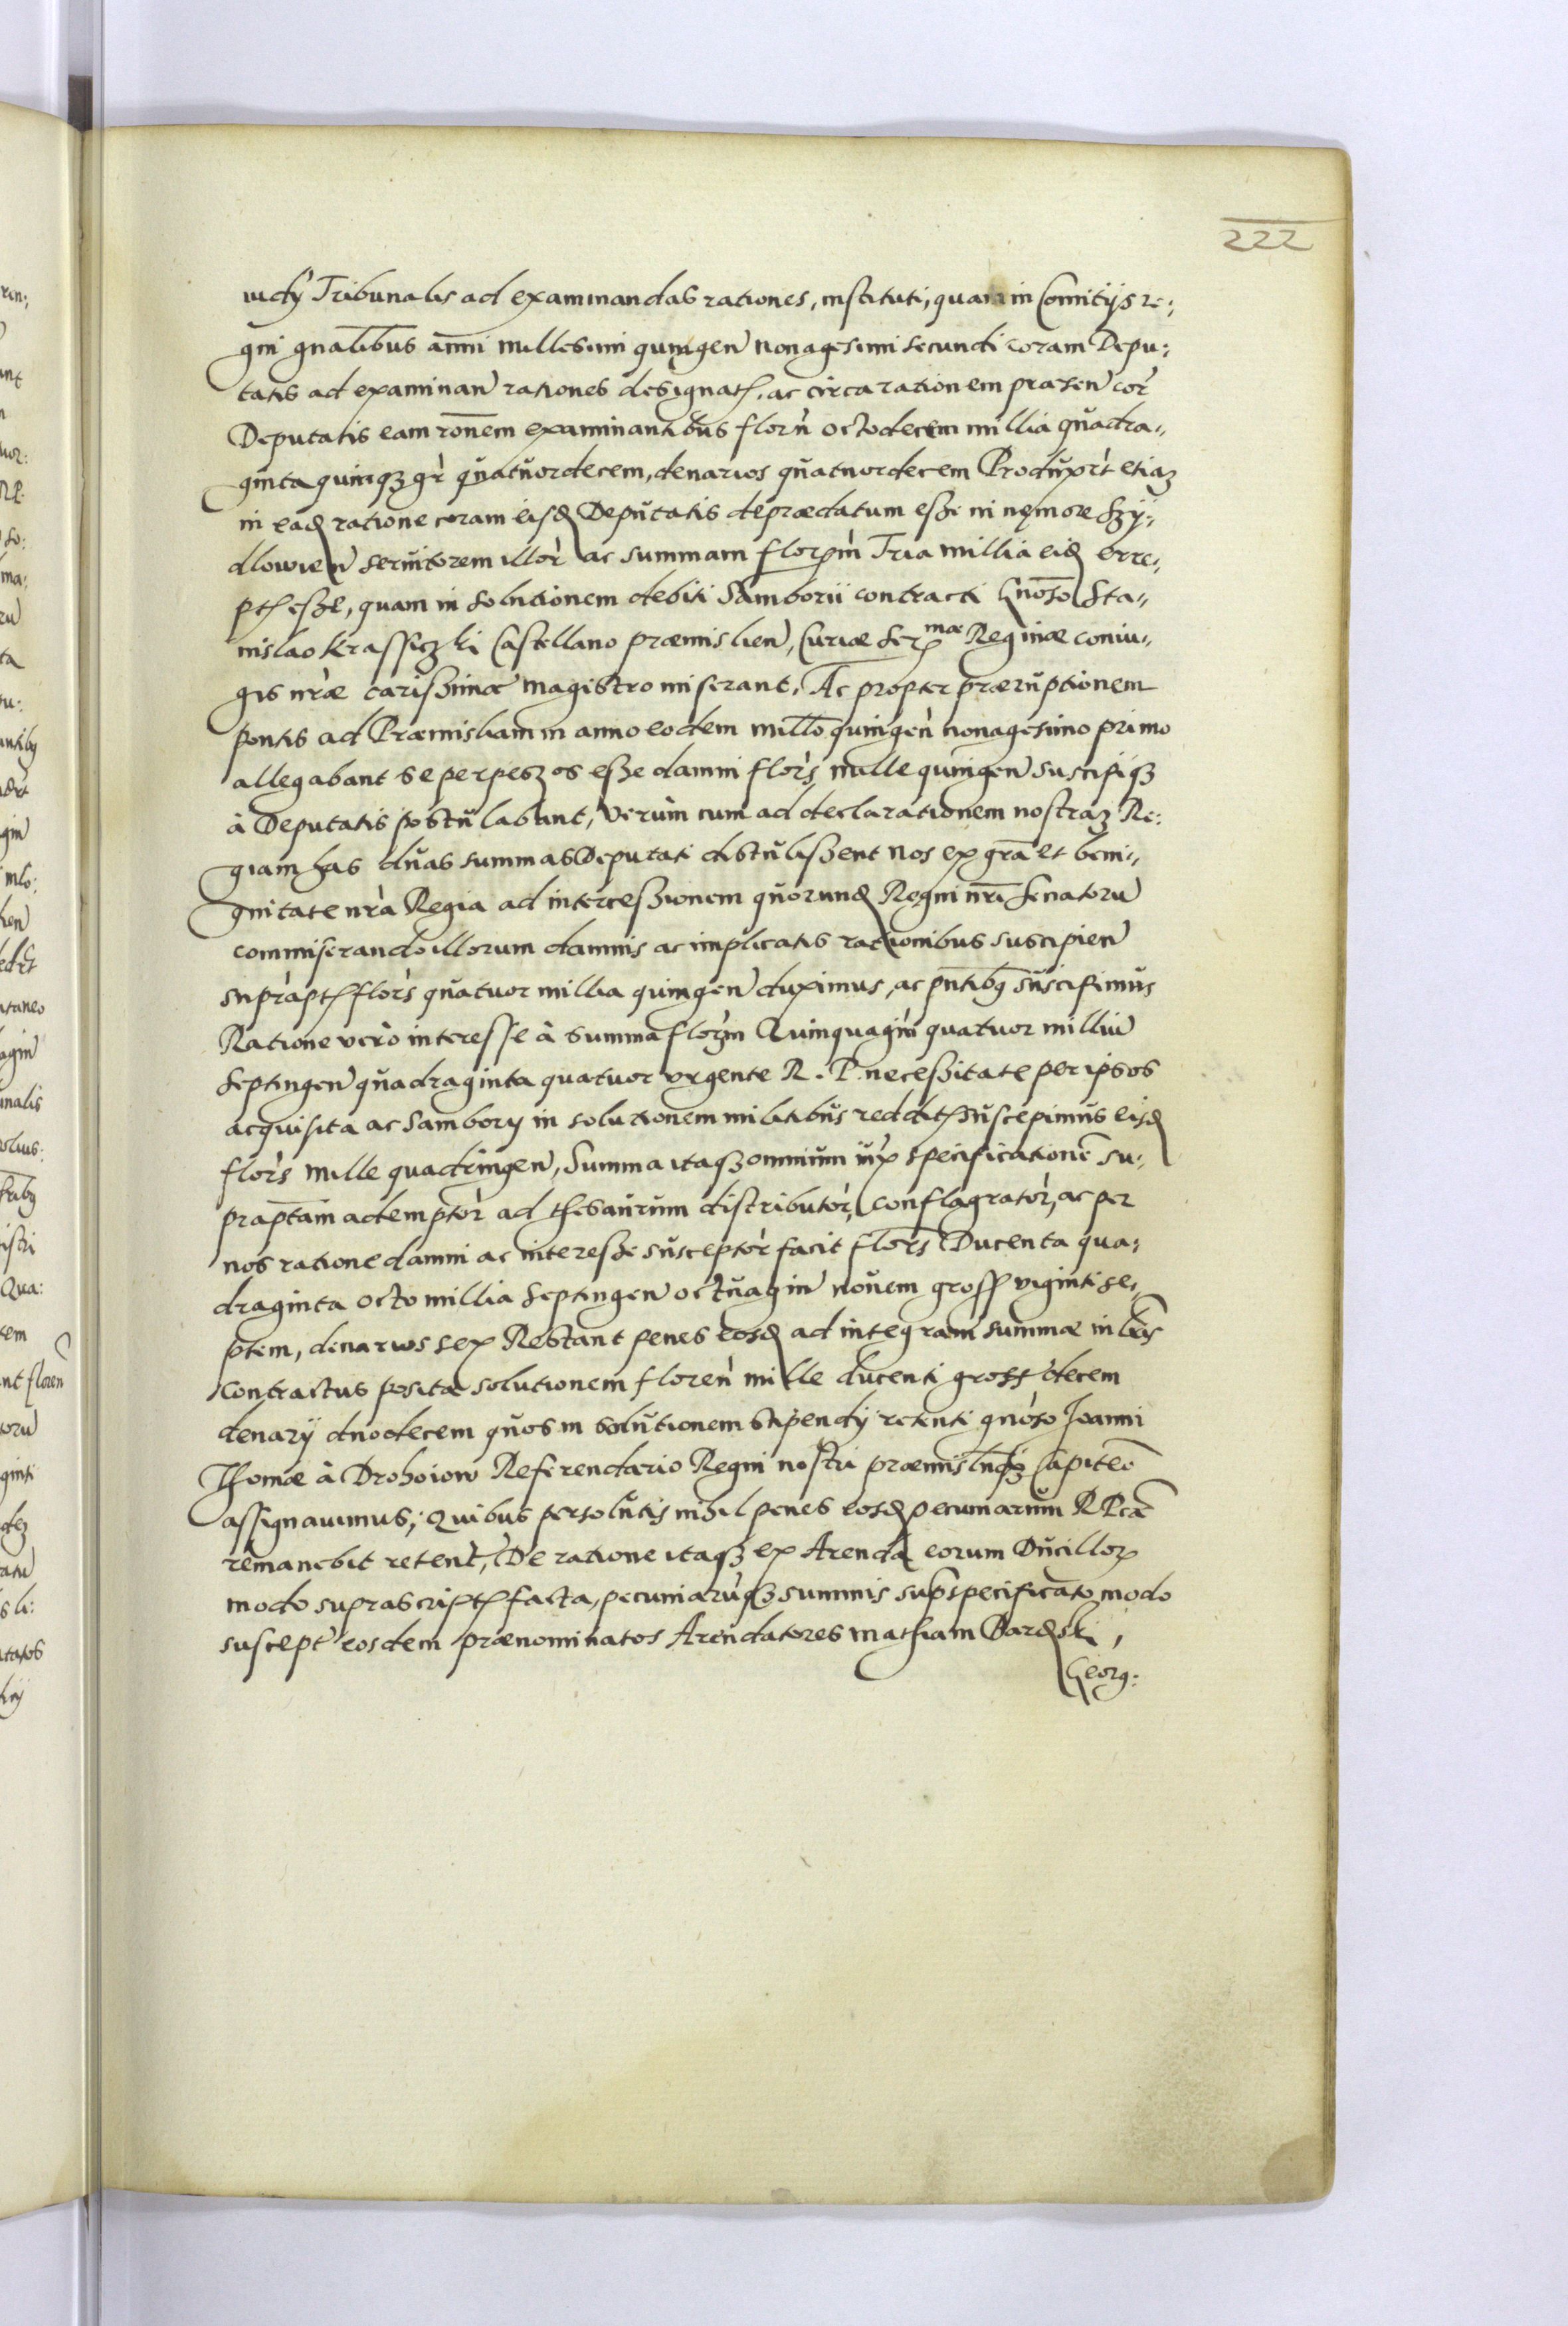 222
iudÿ Tribunalis ad examinandas rationes, instituti, quam in Comitijs re:
gni gnalibus anni millesimi quingen nonagesimi secundi coram Depu:
tatis ad examinan rationes designat, ac circa rationem præsen cor
Deputatis eam ronem examinantibus florn octodecem millia quadra„
ginta quinqz gr quatuordecem, denarios quatuordecem Produxert etiaz
in ead ratione coram eisd Deputatis deprædatum esse in nemore Szy:
dlowien seruitorem illor ac summam florpm Tria millia eid erre:
pt esse, quam in solutionem debiti Samborii contracti Gnoso Sta„
nislao Krassiczki Castellano præmislien, Curiæ Ser mæ Reginæ coniu„
gis nræ carissimæ magistro miserant, Ac propter præruptionem
pontis ad Præmisliam in anno eodem millo quingen nonagesimo primo
allegabant se perpessos esse damni flors mille quingen suscipiqz
à Deputatis postulabant, Verùm cum ad declarationem nostraz Re:
giam has duas summas Deputati distulissent nos ex gra et beni„
gnitate nra Regia ad intercessionem quorund Regni nri Senatoru
commiserando illorum damnis ac implicatis rationibus suscipien
suprapt flors quatuor millia quingen duximus, ac pntibz suscipimus
Ratione verò interesse à summa florm Quinquagin quatuor milliu
Septingen quadraginta quatuor vrgente R. P. necessitate per ipsos
acquisita ac Sambory in solutionem militibus reddit suscepimus eisd
flors mille quadringen, Summa itaqz omnium iux specificatione su:
praptam ademptor ad thesaurum distributor, conflagrator, ac per
nos ratione damni ac interesse susceptor facit flors Ducenta qua:
draginta octo millia Septingen octuagin nouem gross viginti se„
ptem, denarios sex Restant penes eosd ad integram summæ in lris
contractus positæ solutionem floren mille ducenti gross decem
denarÿ duodecem quos in solutionem stipendÿ retenti gnoso Joanni
Thomæ à Drohoiow Referendario Regni nostri præmislnqz Capiteo
assignauimus; Quibus persolutis nihil penes eosd pecuniarum R Pcæ
remanebit retent, De ratione itaqz ex Arenda eorum Ducillor
modo suprascript facta, pecuniarumqz summis sup specificato modo
suscept eosdem prænominatos Arendatores mathiam Bardski,
Georg: